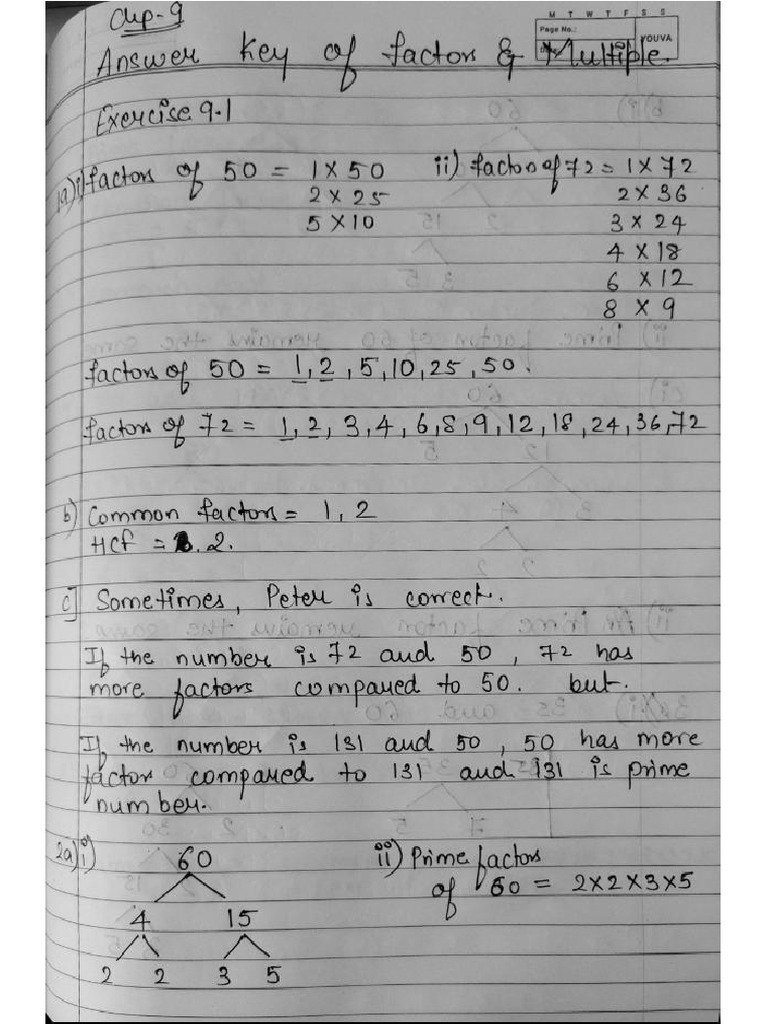 Chp-9
M T W T F S S
Page No.:
YOUVA
Answer key of factors & Multiple.
Exercise 9.1
1a) i) factors of 50 = 1 x 50 ii) factors of 72 = 1 x 72
2 x 25 2 x 36
5 x 10 3 x 24
4 x 18
6 x 12
8 x 9
factors of 50 = 1, 2, 5, 10, 25, 50.
factors of 72 = 1, 2, 3, 4, 6, 8, 9, 12, 18, 24, 36, 72
b) Common factors = 1, 2
HCF = 2.
c] Sometimes, Peter is correct.
If the number is 72 and 50, 72 has
more factors compared to 50. but.
If the number is 131 and 50, 50 has more
factor compared to 131 and 131 is prime
number.
2a) i) 60 ii) Prime factors
of 60 = 2x2x3x5
4 15
2 2 3 5